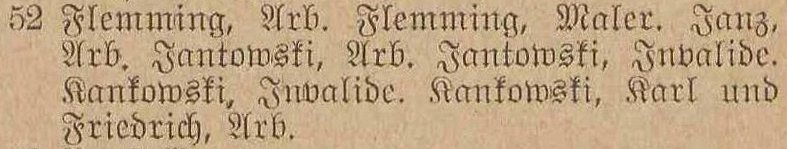 52 Flemming, Arb. Flemming, Maler. Janz,
Arb. Jantowski, Arb. Jantowski, Invalide.
Kankowski, Invalide. Kankowski, Karl und
Friedrich, Arb.